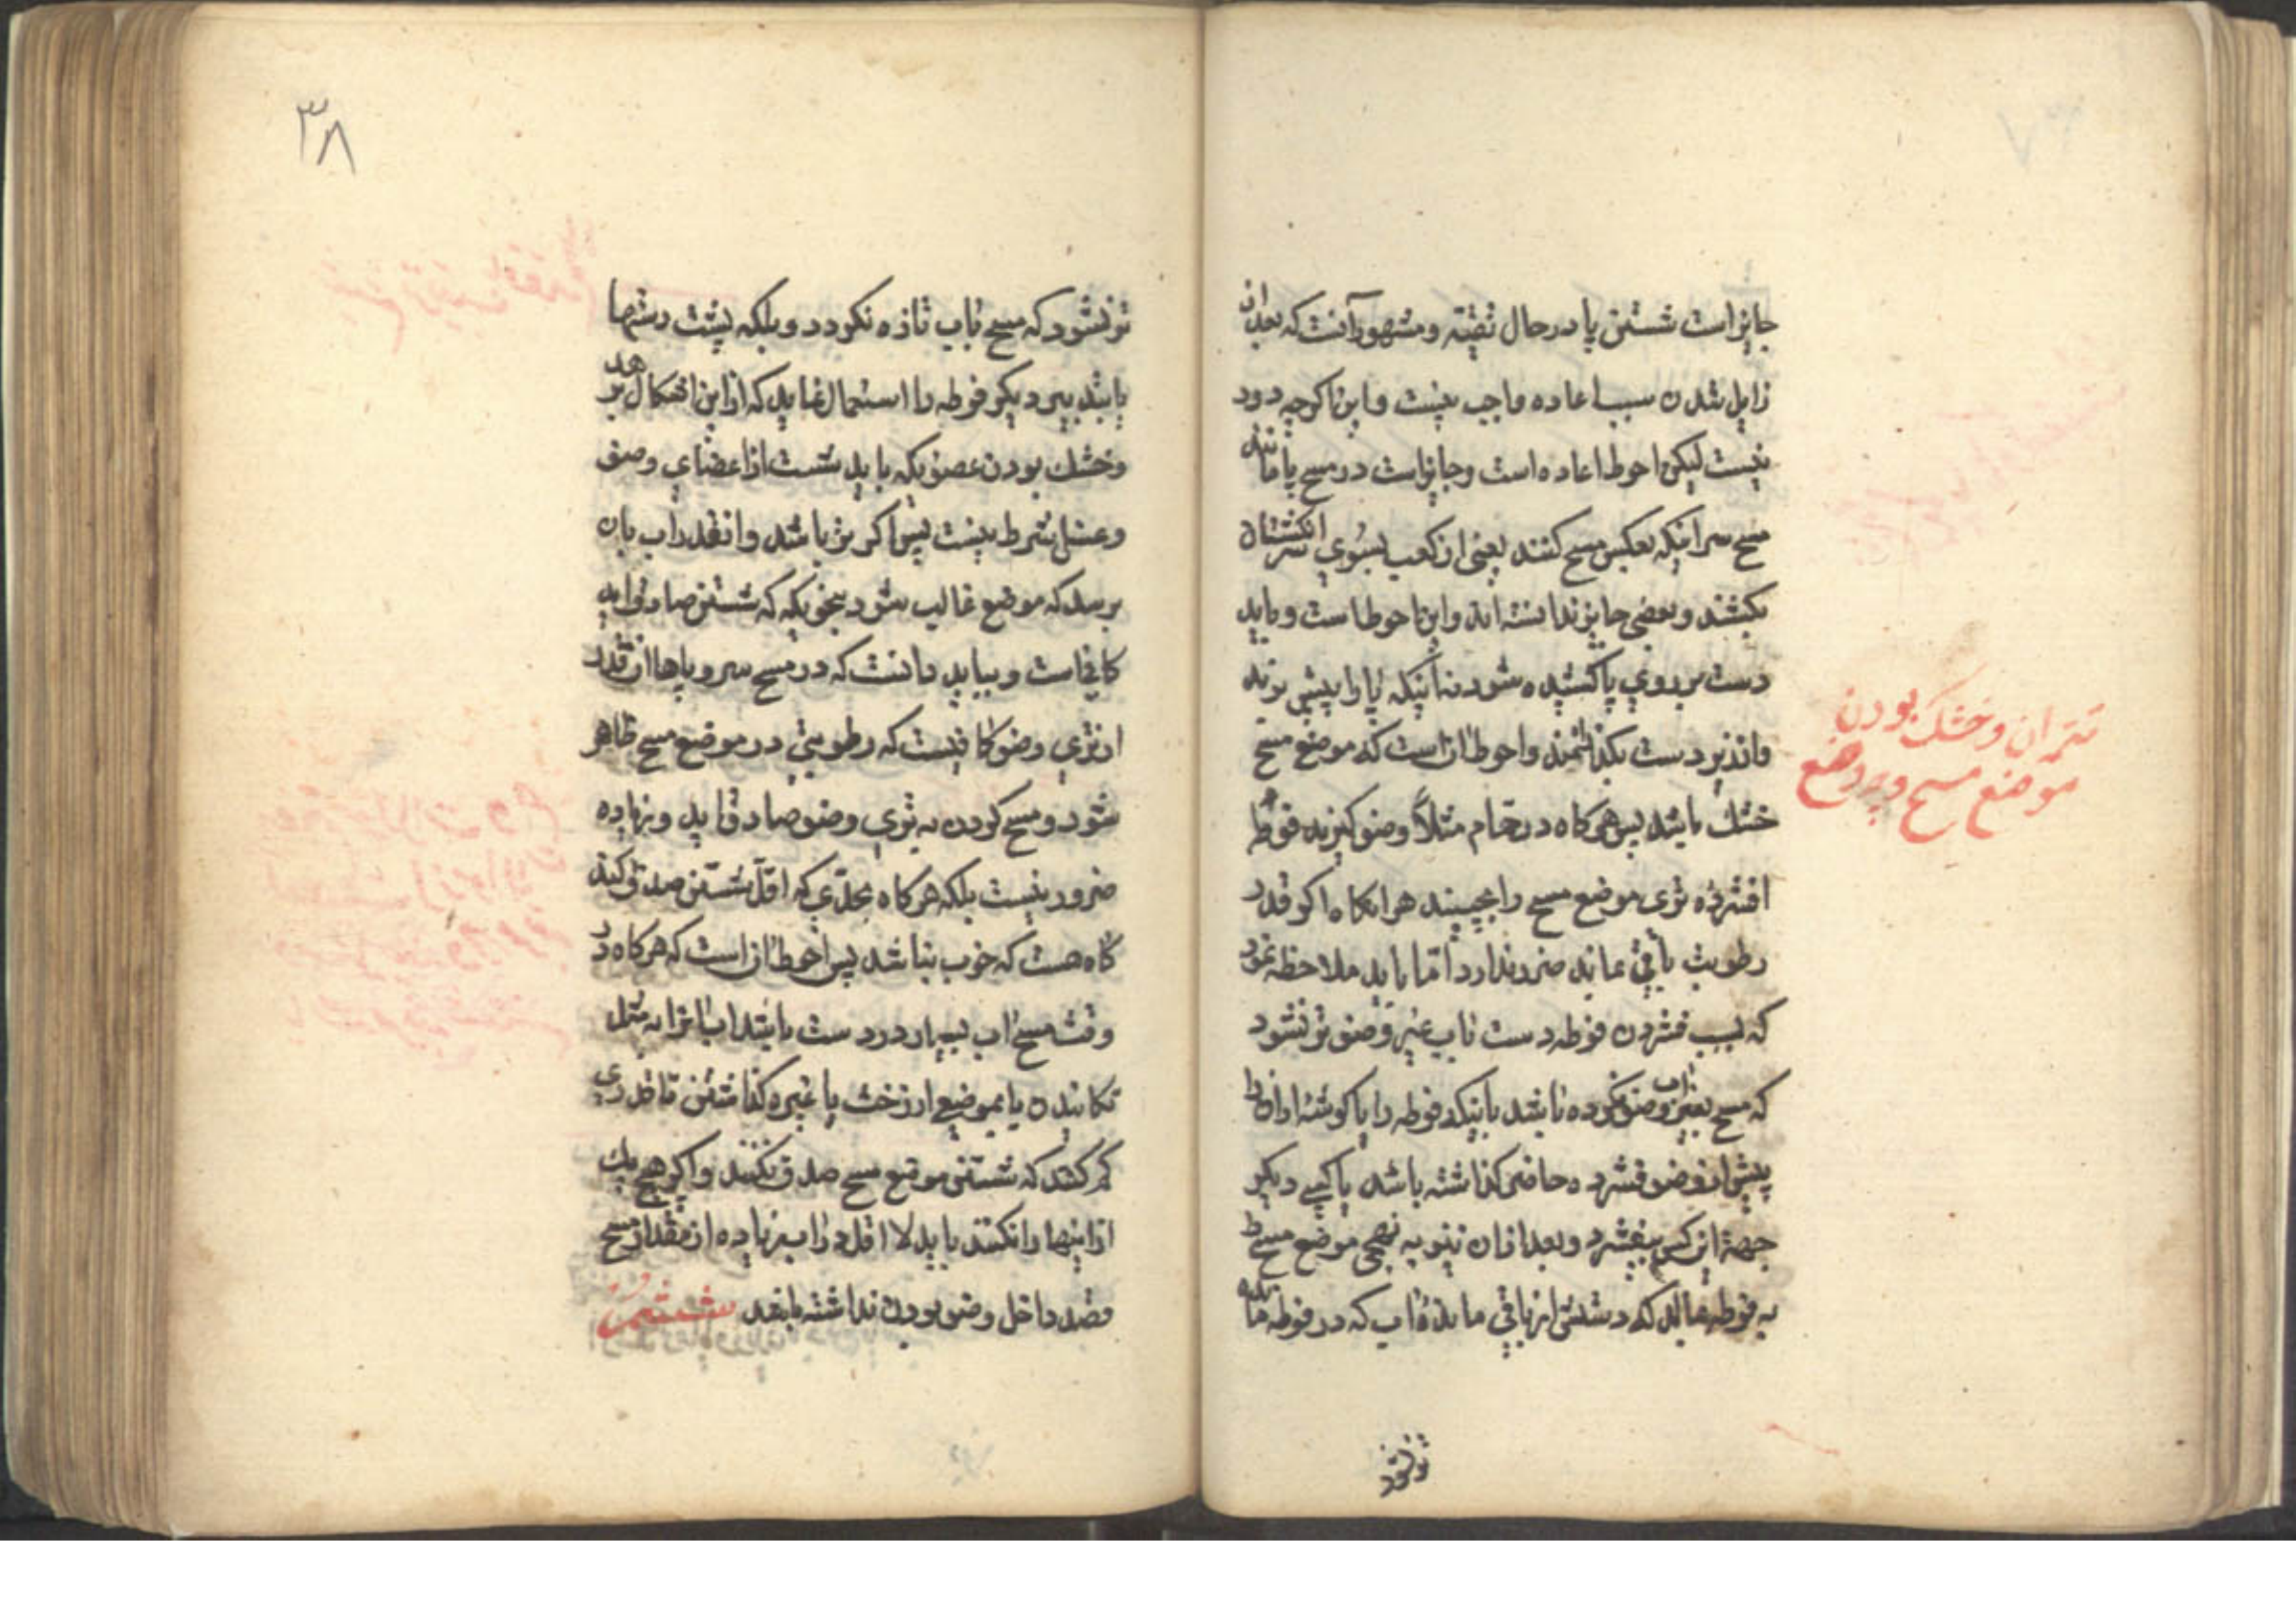 جایز است شستن پا در حال تقیّه و مشهور آنست که بعد از
زایل شدن سبب اعاده واجب نیست و این اگرچه دور
نیست لیکن احوط اعاده است و جایز است در مسح پا مانند
مسح سر اینکه بعکس مسح کنند یعنی از کعب بسوی سر انکشتان
بکشند و بعضی جایز ندانسته اند و این احوط است و باید
دست بر روی پا کشیده شود نه اینکه پا را پیش برند
و از زیر دست بکذرانند و احوط آن است که موضع مسح
خشک باشد پس هرکاه در حمّام مثلاً وضو کیرند فوطهٔ
افشرده تری موضع مسح را بچینند هرانکاه اکر قدر
رطوبت باقی بماند ضرر ندارد امّا باید ملاحظه نمود
که بسبب فشردن فوطه دست باب غیر وضو تر نشود
که مسح بغیر آب وضو نکرده باشد باینکه فوطه را یا کوشهٔ از آن را
پیش از وضو فشرده حاضر کذاشته باشد یا کسی دیکر
جهة این کس بیفشرد و بعد از آن نیز به نهجی موضع مسح را
به فوطه بمالد که دستش از باقی ماندهٔ اب که در فوطه مانده
تر نشود
تتمه ان و خشک بودن
موضع مسح و
۳۸
تر نشود که مسح باب تازه نکردد و بلکه پشت دستها
باشد دیکر فوطه را استعمال نماید که از این اشکال برهد
و خشک بودن عضویکه باید شست از اعضای وضو
و غسل شرط نیست پس اکر تر باشد و انقدر اب بان
برسد که موضع غالب شود بنحویکه که شستن صادق اید
کافی است و بباید دانست که در مسح سر و پاها انقدر
از تری وضو کافیست که رطوبتی در موضع مسح ظاهر
شود و مسح کردن به تری وضو صادق اید و زیاده
ضرور نیست بلکه هرکاه بحدّی که اقلّ شستن صدق کند
کاه هست که خوب نباشد پس احوط ان است که هرکاه در
وقت مسح اب بسیار در دست باشد اب انرا به مثل
تکانیدن یا بموضعی از رخت یا غیره کذاشتن تا قدری
کم کنند که شستن موضع مسح صدق نکند و اکر هیچ یک
از اینها را نکنند باید لا اقل در اب زیاده از مقدار مسح
قصد داخل وضو بودن نداشته باشد ششم